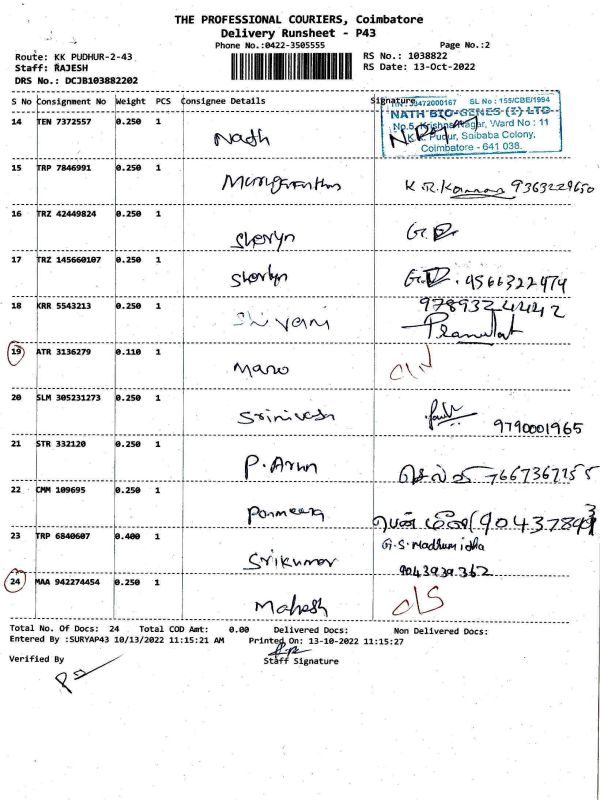 THE PROFESSIONAL COURIERS, Coimbatore
Delivery Runsheet - P43
Phone No.:0422-3505555 Page No.:2
Route: KK PUDHUR-2-43 RS No.: 1038822
Staff: RAJESH RS Date: 13-Oct-2022
DRS No.: DCJB103882202
S No Consignment No Weight PCS Consignee Details Signature
SL No : 155/CBE/1994
14 TEN 7372557 0.250 1 Nath NATH BIO-GENES (I) LTD
No.5, Krishna Nagar, Ward No : 11
K.K. Pudur, Saibaba Colony,
Coimbatore - 641 038.
15 TRP 7846991 0.250 1 K.R.Kannan 9363229650
16 TRZ 42449824 0.250 1 Sherlyn G.D.
17 TRZ 145660107 0.250 1 Sherlyn G.D. 9566322474
18 KRR 5543213 0.250 1 Shivani 9789324442
19 ATR 3136279 0.110 1 Mano
20 SLM 305231273 0.250 1 Srinivash 9790001965
21 STR 332120 0.250 1 P.Arun செல்வி 7667367255
22 CMM 109695 0.250 1
23 TRP 6840607 0.400 1 Srikumar G.S.Madhumidha
9043939362
24 MAA 942274454 0.250 1 Mahesh C/S
Total No. Of Docs: 24 Total COD Amt: 0.00 Delivered Docs: Non Delivered Docs:
Entered By :SURYAP43 10/13/2022 11:15:21 AM Printed On: 13-10-2022 11:15:27
Verified By Staff Signature